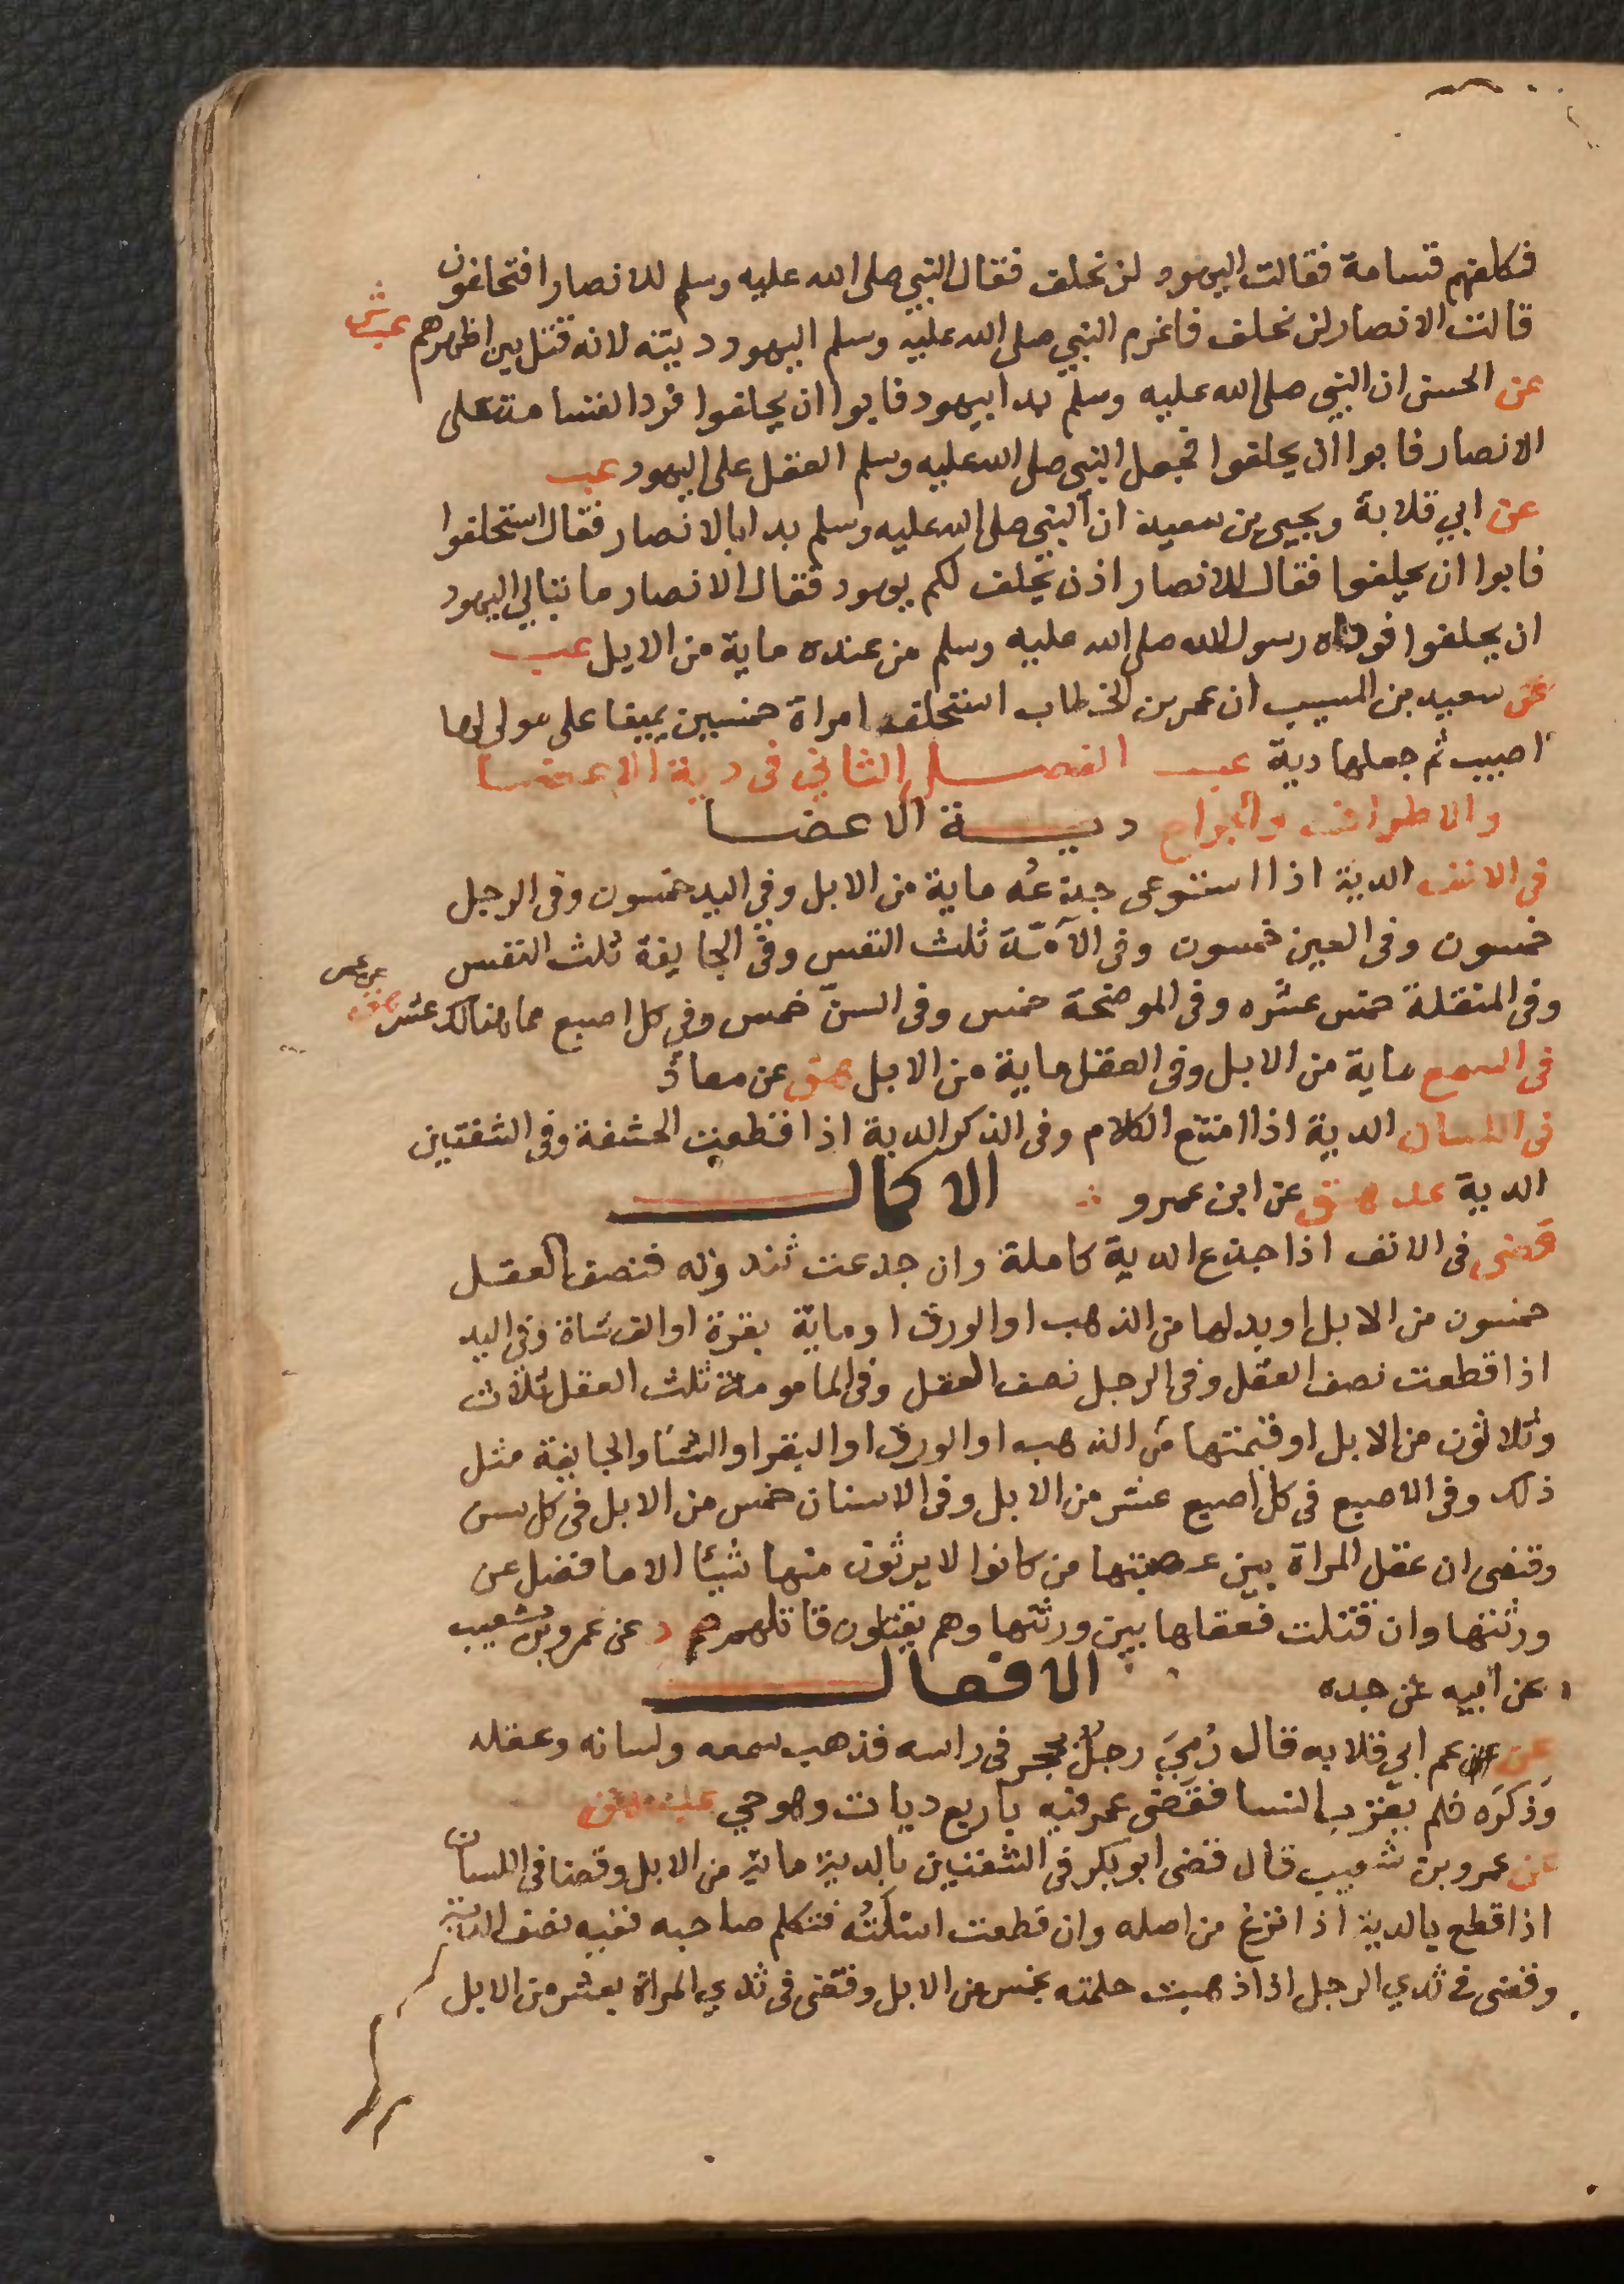 فكلفهم قسامة فقالت اليهود لن نحلف فقال النبي صلى الله عليه وسلم للانصار افتحلفون
قالت الانصار لن نحلف فاغرم النبي صلى الله عليه وسلم اليهود ديته لانه قتل بين اظهرهم عب ش
عن الحسن ان النبي صلى الله عليه وسلم بدا بيهود فابوا ان يحلفوا فرد القسامة على
الانصار فابوا ان يحلفوا فجعل النبي صلى الله عليه وسلم العقل على اليهود عب
عن ابي قلابة ويحيى بن سعيد ان النبي صلى الله عليه وسلم بدا بالانصار فقال استحلفوا
فابوا ان يحلفوا فقال للانصار اذن يحلف لكم يهود فقال الانصار ما تبالي اليهود
ان يحلفوا فوداه رسول الله صلى الله عليه وسلم من عنده ماية من الابل عب
عن سعيد بن المسيب ان عمر بن الخطاب استحلف امراة خمسين يمينا على مولى لها
اصيب ثم جعلها دية عب الفصل الثاني في دية الاعضا
والاطراف والجراح دية الاعضا
في الانف الدية اذا استوعى جدعه ماية من الابل وفي اليد خمسون وفي الرجل
خمسون وفي العين خمسون وفي الآمّة ثلث النفس وفي الجايفة ثلث النفس
وفي المنقلة خمس عشره وفي الموضحة خمس وفي السنّ خمس وفي كل اصبع مما هنالك عشر هق عن عمر
في السمع ماية من الابل وفي العقل ماية من الابل هق عن معاذ
في اللسان الدية اذا امتنع الكلام وفي الذكر الدية اذا قطعت الحشفة وفي الشفتين
الدية عد هق عن ابن عمرو الاكمال
قضى في الانف اذا جدع الدية كاملة وان جدعت ثندوته فنصف العقل
خمسون من الابل او بدلها من الذهب او الورق او ماية بقرة او الف شاة وفي اليد
اذا قطعت نصف العقل وفي الرجل نصف العقل وفي المامومة ثلث العقل ثلاث
وثلاثون من الابل او قيمتها من الذهب او الورق او البقر او الشا والجايفة مثل
ذلك وفي الاصبع في كل اصبع عشر من الابل وفي الاسنان خمس من الابل في كل سن
وقضى ان عقل المراة بين عصبتها من كانوا لا يرثون منها شيئا الا ما فضل عن
ورثتها وان قتلت فعقلها بين ورثتها وهم يقتلون قاتلهم حم د عن عمرو بن شعيب
عن ابيه عن جده الافعال
عن عم ابي قلابه قال رُمِيَ رجلٌ بحجر في راسه فذهب سمعه ولسانه وعقله
وَذَكَرَه فلم يقرب النسا فقضى عمر فيه باربع ديات وهو حي عب هق
عن عمرو بن شعيب قال قضى ابو بكر في الشفتين بالدية ماية من الابل وقضا في اللسان
اذا قطع بالدية اذا نزع من اصله وان قطعت اسَلَتُه فتكلم صاحبه ففيه نصف الدية
وقضى في ثدي الرجل اذا ذهبت حلمته بخمس من الابل وقضى في ثدي المراة بعشر من الابل